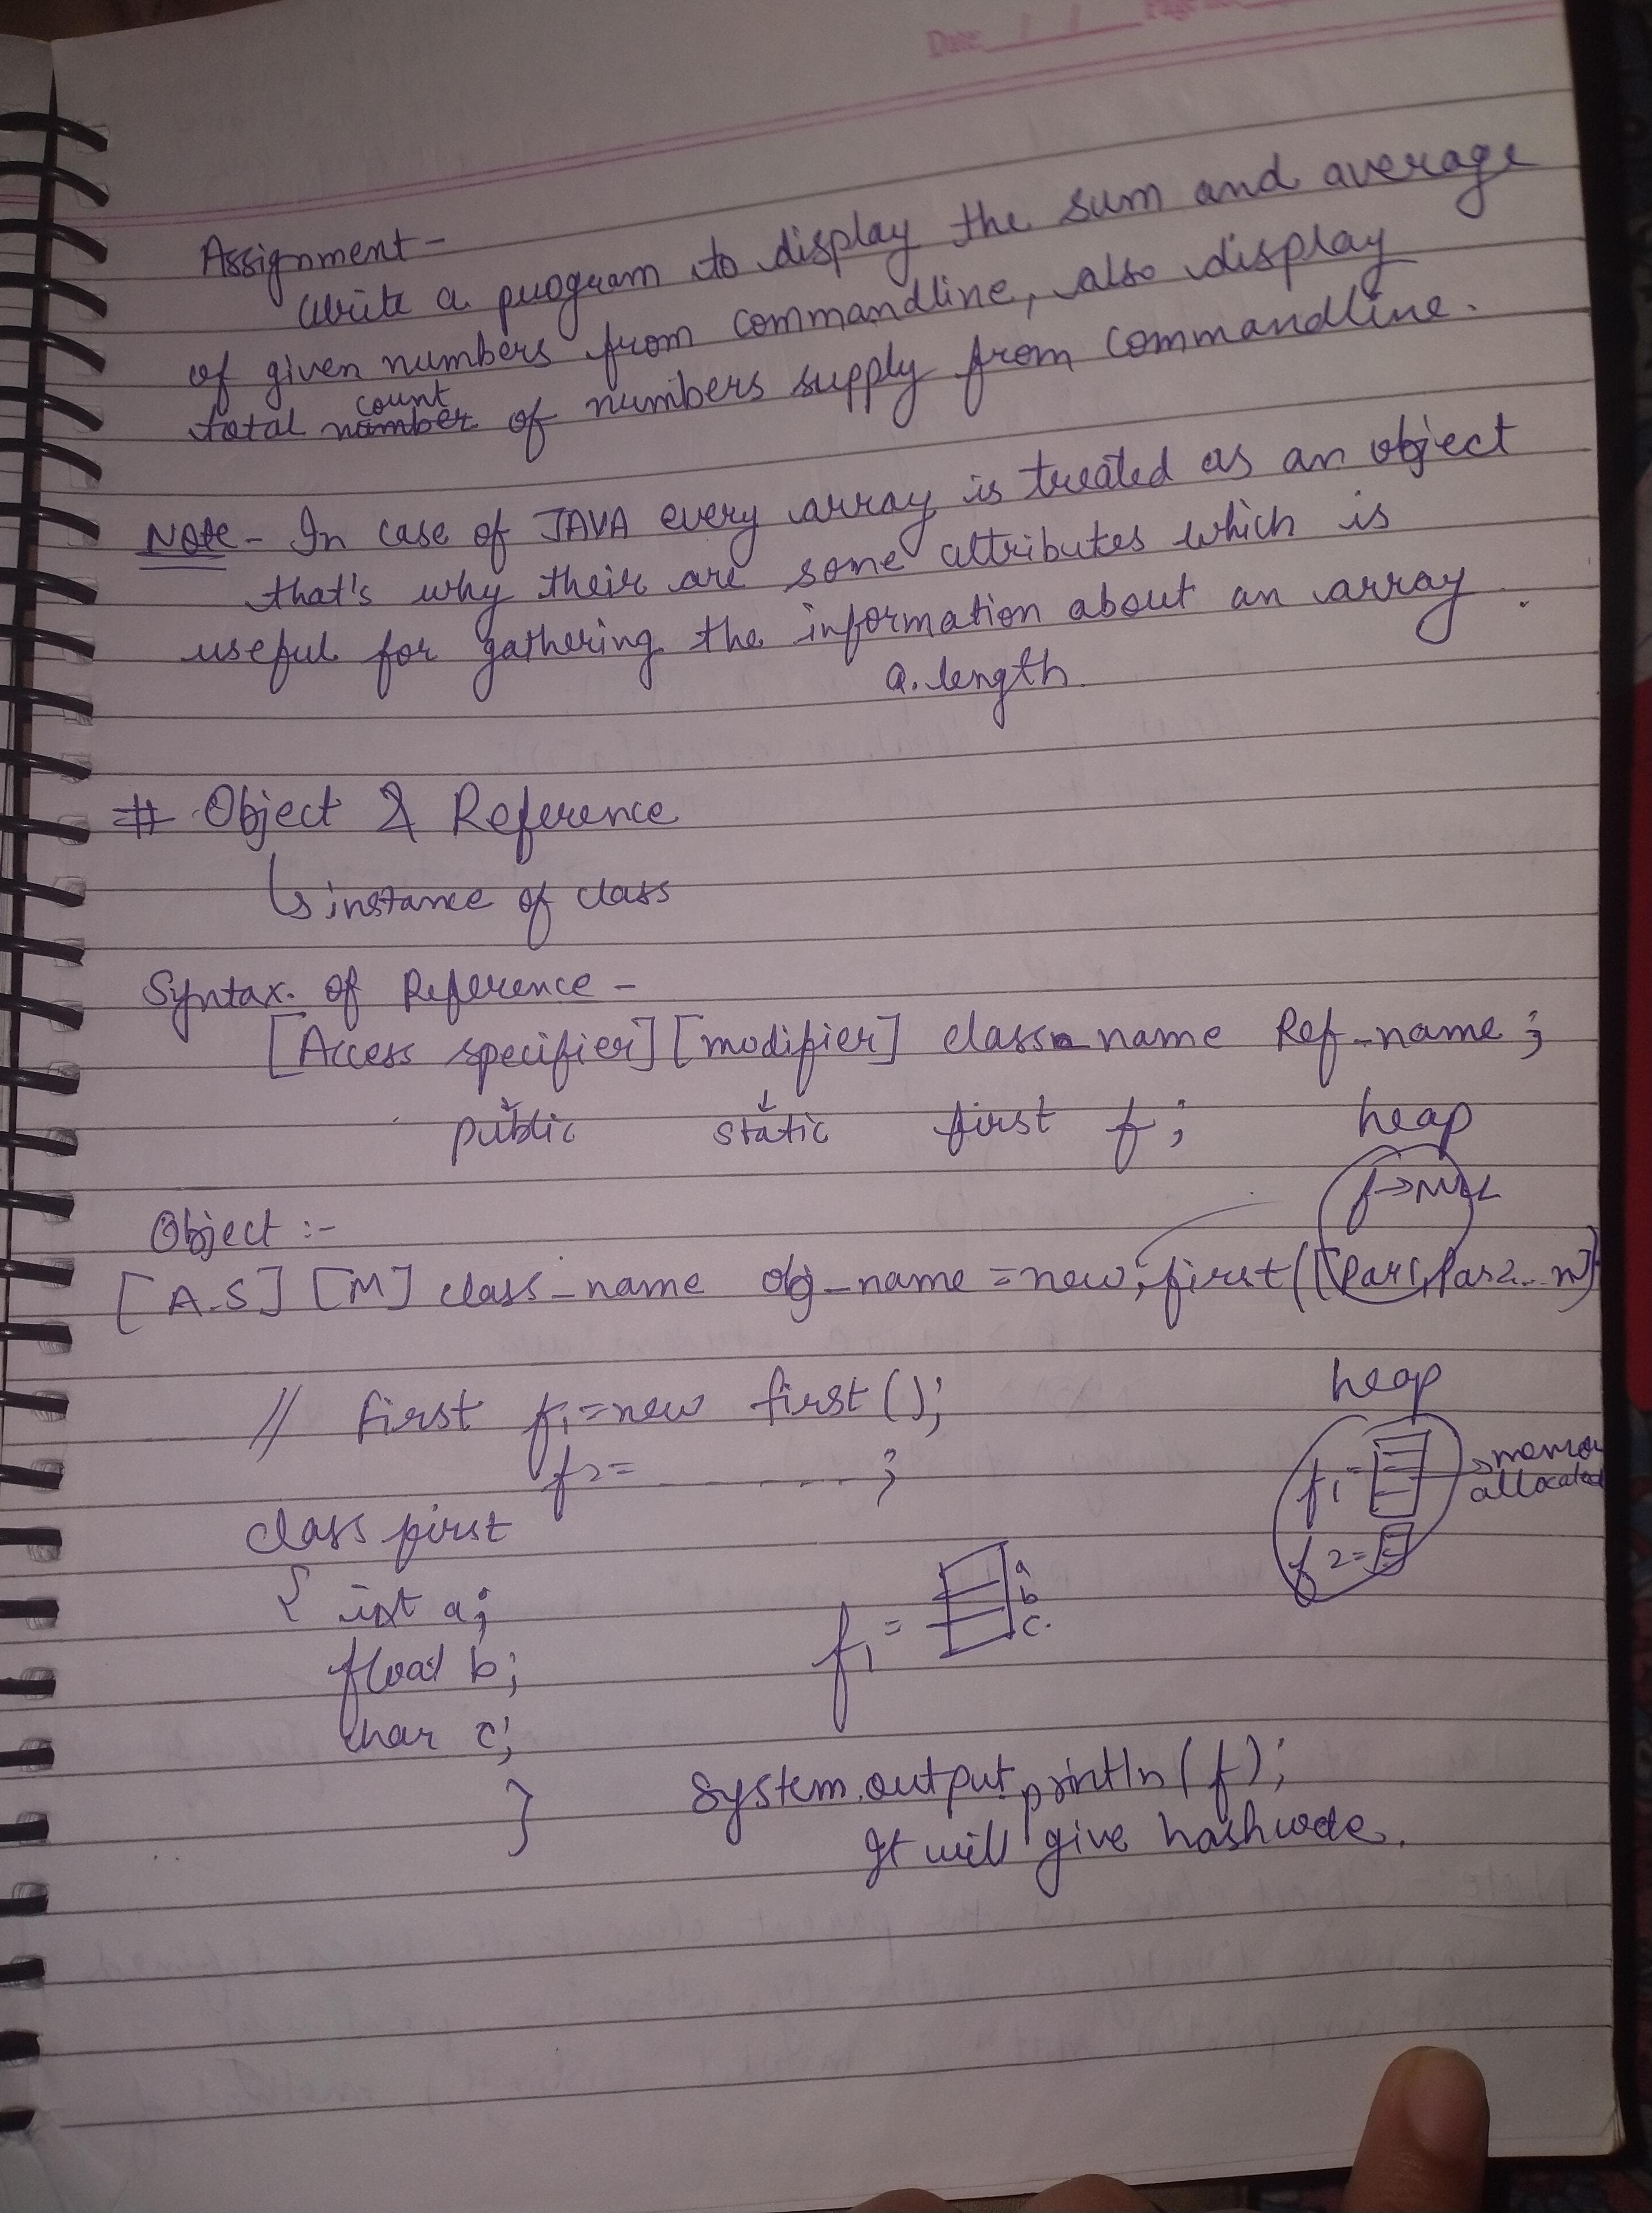 Date: / / Page no.
Assignment -
Write a program to display the sum and average
of given numbers from commandline, also display
count
total number of numbers supply from commandline.
Note - In case of JAVA every array is treated as an object
that's why their are some attributes which is
useful for gathering the information about an array.
a.length
# Object & Reference
↳ instance of class
Syntax of Reference -
[Access specifier] [modifier] class_name Ref_name;
public static first f; heap
f→NULL
Object :-
[A.S] [M] class_name obj_name = new first([Par1, Par2...n]
// first f1 = new first(); heap
f2 = ........;
f1 = memor
allocated
f2 =
class first
{ int a;
float b;
char c;
}
f1 = a
b
c.
System.output.println(f);
It will give hashcode.